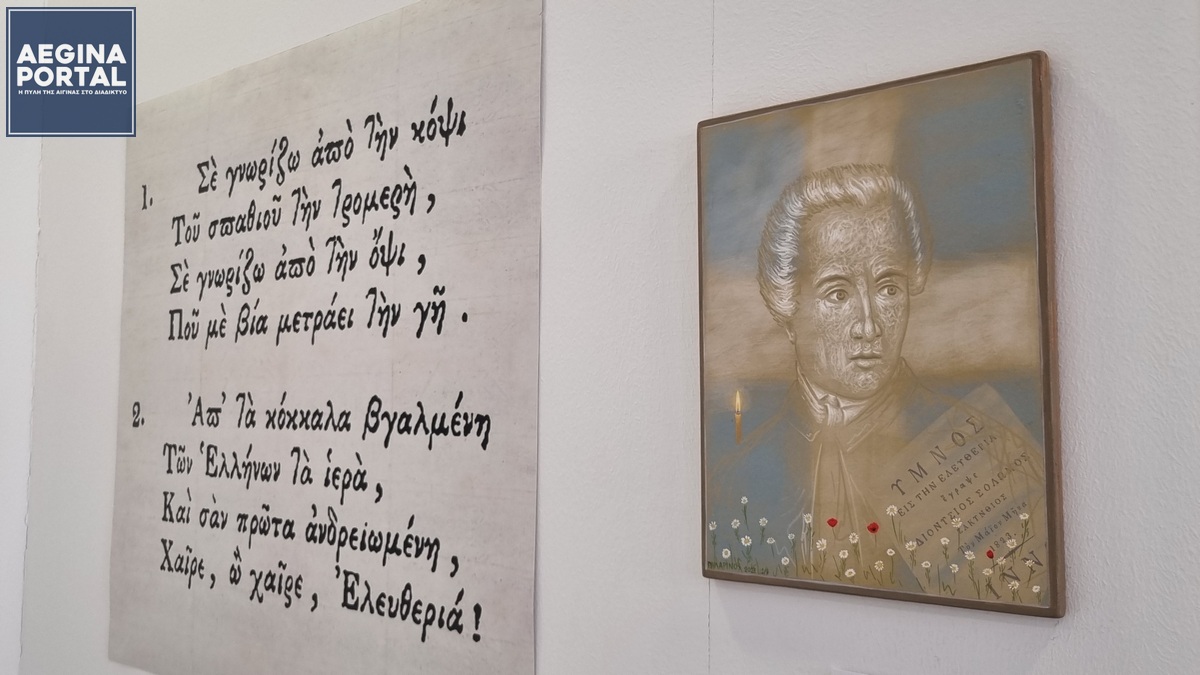 AEGINA
PORTAL
Η ΠΥΛΗ ΤΗΣ ΑΙΓΙΝΑΣ ΣΤΟ ΔΙΑΔΙΚΤΥΟ
1. Σὲ γνωρίζω ἀπὸ τὴν κόψι
Τοῦ σπαθιοῦ τὴν τρομερὴ,
Σὲ γνωρίζω ἀπὸ τὴν ὄψι,
Ποῦ μὲ βία μετράει τὴν γῆ.
2. Ἀπ' τὰ κόκκαλα βγαλμένη
Τῶν Ἑλλήνων τὰ ἱερὰ,
Καὶ σὰν πρῶτα ἀνδρειωμένη,
Χαῖρε, ὢ χαῖρε, Ἐλευθεριά!
ΥΜΝΟΣ
ΕΙΣ ΤΗΝ ΕΛΕΥΘΕΡΙΑ
ἔγραψε
ΔΙΟΝΥΣΙΟΣ ΣΟΛΩΜΟΣ
ΖΑΚΥΝΘΙΟΣ
Τὸν Μάϊον Μῆνα